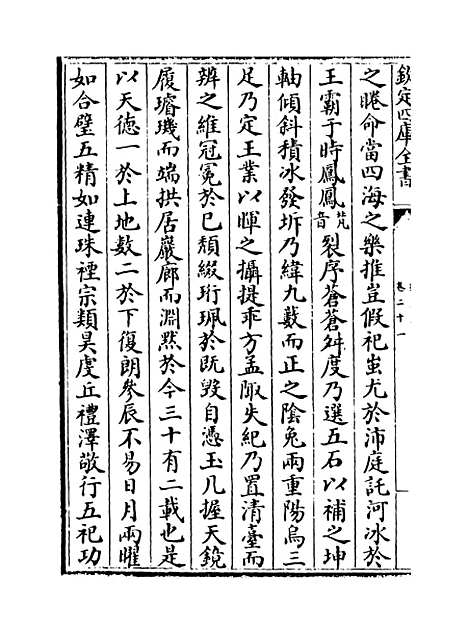 欽定四庫全書
卷二十一
之睠命當四海之樂推豈假祀蚩尤於沛庭託河冰於
王霸于時鳳鳳梵音裂序蒼蒼舛度乃選五石以補之坤
軸傾斜積冰發坼乃緯九藪而正之陰兔兩重陽烏三
足乃定王業以暉之攝提乖方孟陬失紀乃置清臺而
辨之維冠冕於已頽綴珩珮於既毀自憑玉几握天鏡
履璿璣而端拱居巖廊而淵黙於今三十有二載也是
以天德一於上地數二於下復朗參辰不易日月兩曜
如合璧五精如連珠禋宗類昊虔丘禮澤敬行五祀功